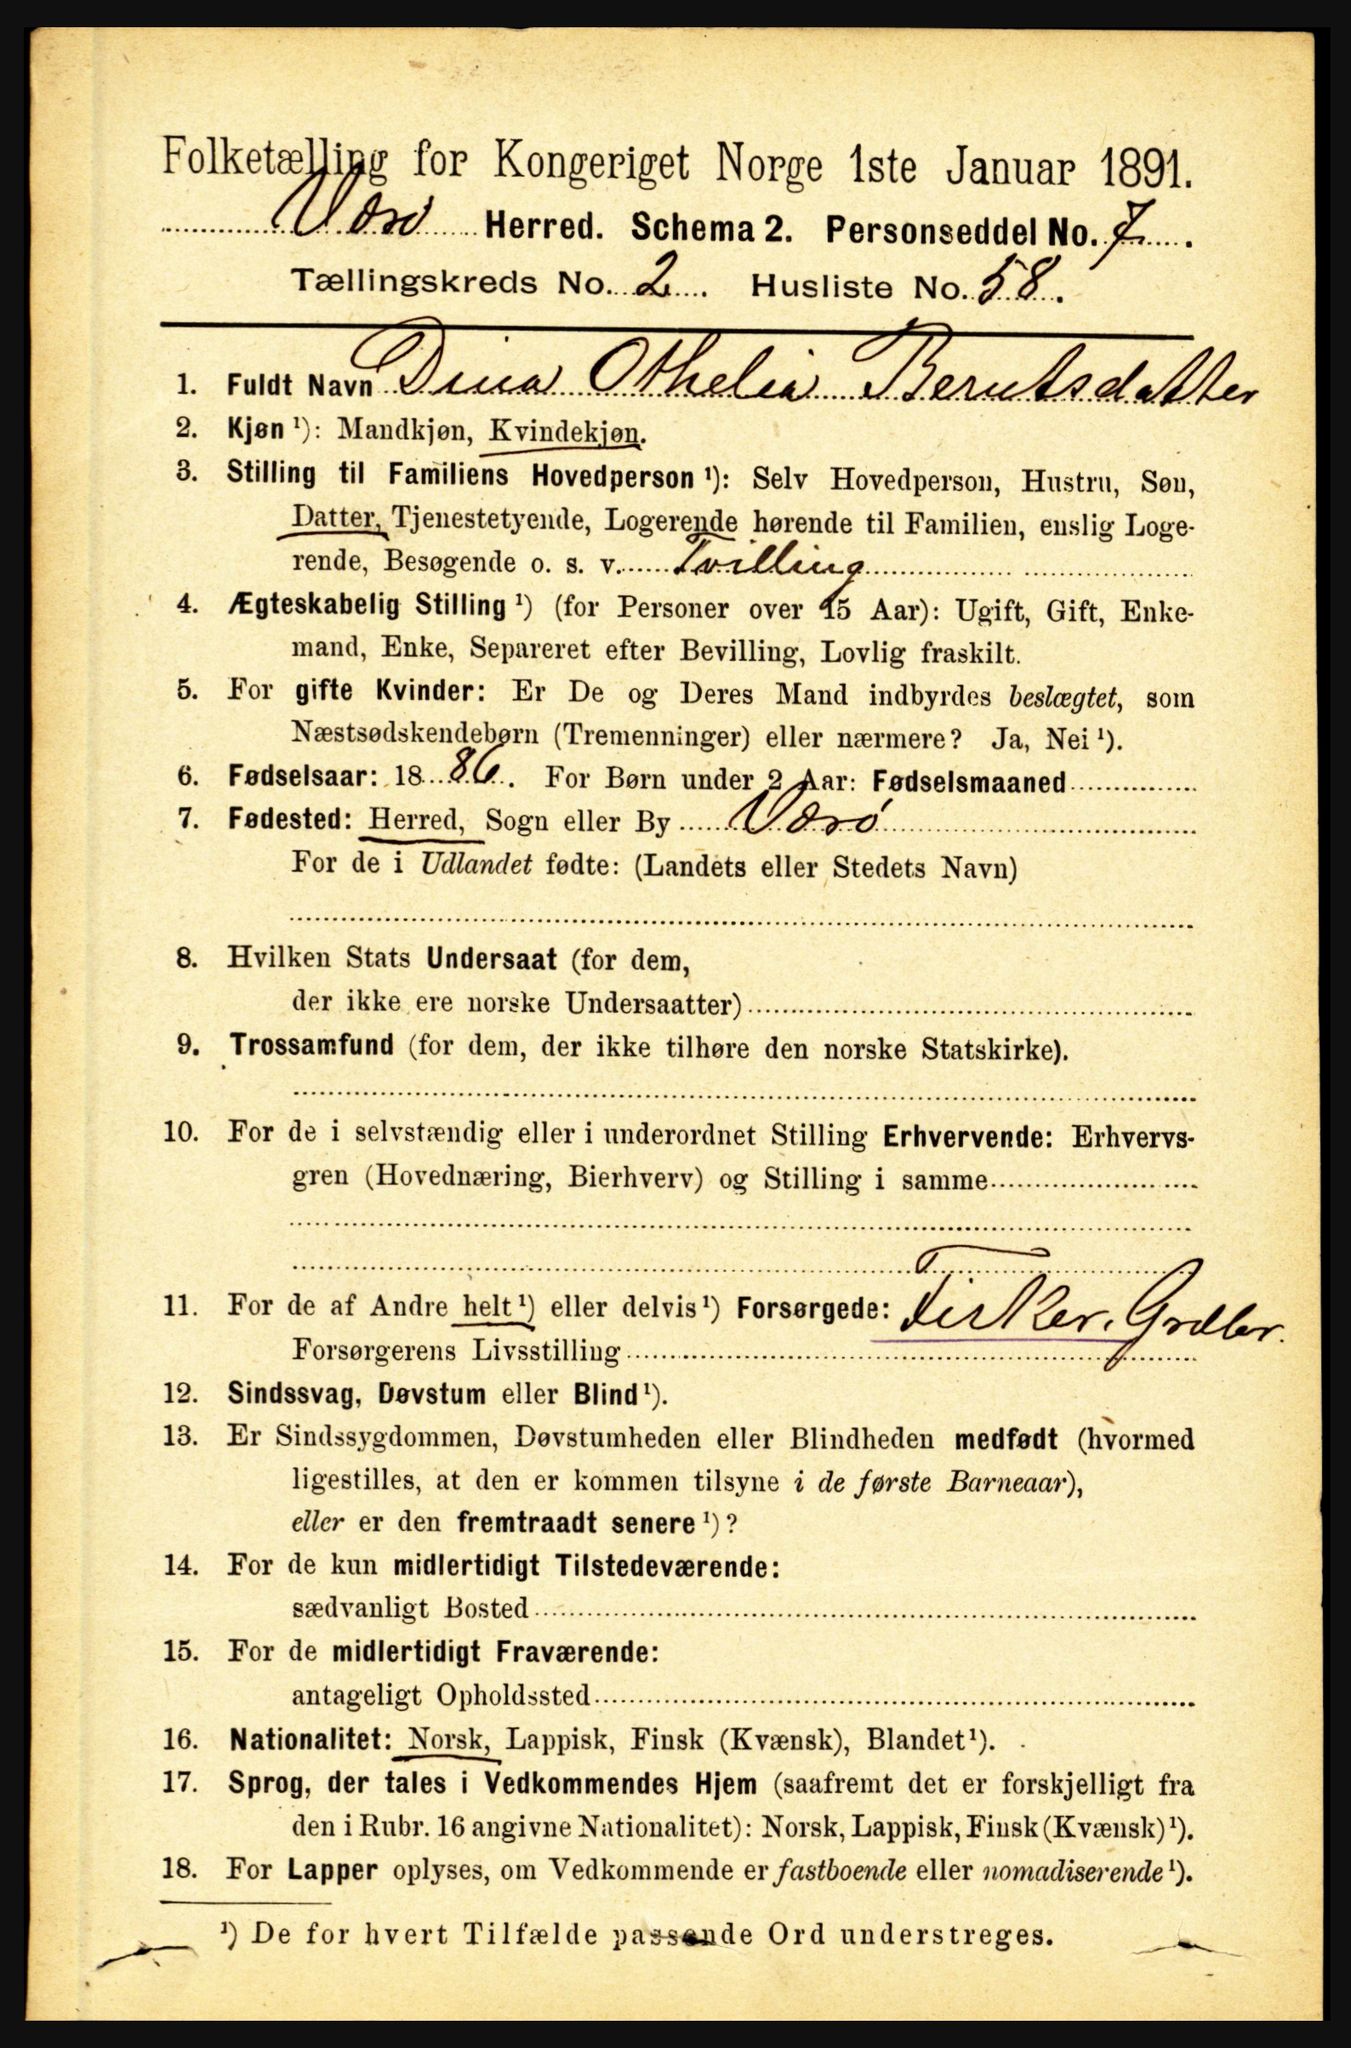 Folketælling for Kongeriget Norge 1ste Januar 1891.
Værø Herred. Schema 2. Personseddel No. 7.
Tællingskreds No. 2. Husliste No. 58.
1. Fuldt Navn Dina Othelia Berntsdatter
2. Kjøn ¹): Mandkjøn, Kvindekjøn.
3. Stilling til Familiens Hovedperson ¹): Selv Hovedperson, Hustru, Søn,
Datter, Tjenestetyende, Logerende hørende til Familien, enslig Loge-
rende, Besøgende o. s. v. Tvilling
4. Ægteskabelig Stilling ¹) (for Personer over 15 Aar): Ugift, Gift, Enke-
mand, Enke, Separeret efter Bevilling, Lovlig fraskilt.
5. For gifte Kvinder: Er De og Deres Mand indbyrdes beslægtet, som
Næstsødskendebørn (Tremenninger) eller nærmere? Ja, Nei ¹).
6. Fødselsaar: 1886. For Børn under 2 Aar: Fødselsmaaned
7. Fødested: Herred, Sogn eller By Værø
For de i Udlandet fødte: (Landets eller Stedets Navn)
8. Hvilken Stats Undersaat (for dem,
der ikke ere norske Undersaatter)
9. Trossamfund (for dem, der ikke tilhøre den norske Statskirke).
10. For de i selvstændig eller i underordnet Stilling Erhvervende: Erhvervs-
gren (Hovednæring, Bierhverv) og Stilling i samme
11. For de af Andre helt ¹) eller delvis ¹) Forsørgede: Fisker.
Forsørgerens Livsstilling
12. Sindssvag, Døvstum eller Blind ¹).
13. Er Sindssygdommen, Døvstumheden eller Blindheden medfødt (hvormed
ligestilles, at den er kommen tilsyne i de første Barneaar),
eller er den fremtraadt senere ¹)?
14. For de kun midlertidigt Tilstedeværende:
sædvanligt Bosted
15. For de midlertidigt Fraværende:
antageligt Opholdssted
16. Nationalitet: Norsk, Lappisk, Finsk (Kvænsk), Blandet ¹).
17. Sprog, der tales i Vedkommendes Hjem (saafremt det er forskjelligt fra
den i Rubr. 16 angivne Nationalitet): Norsk, Lappisk, Finsk (Kvænsk) ¹).
18. For Lapper oplyses, om Vedkommende er fastboende eller nomadiserende ¹).
¹) De for hvert Tilfælde passende Ord understreges.